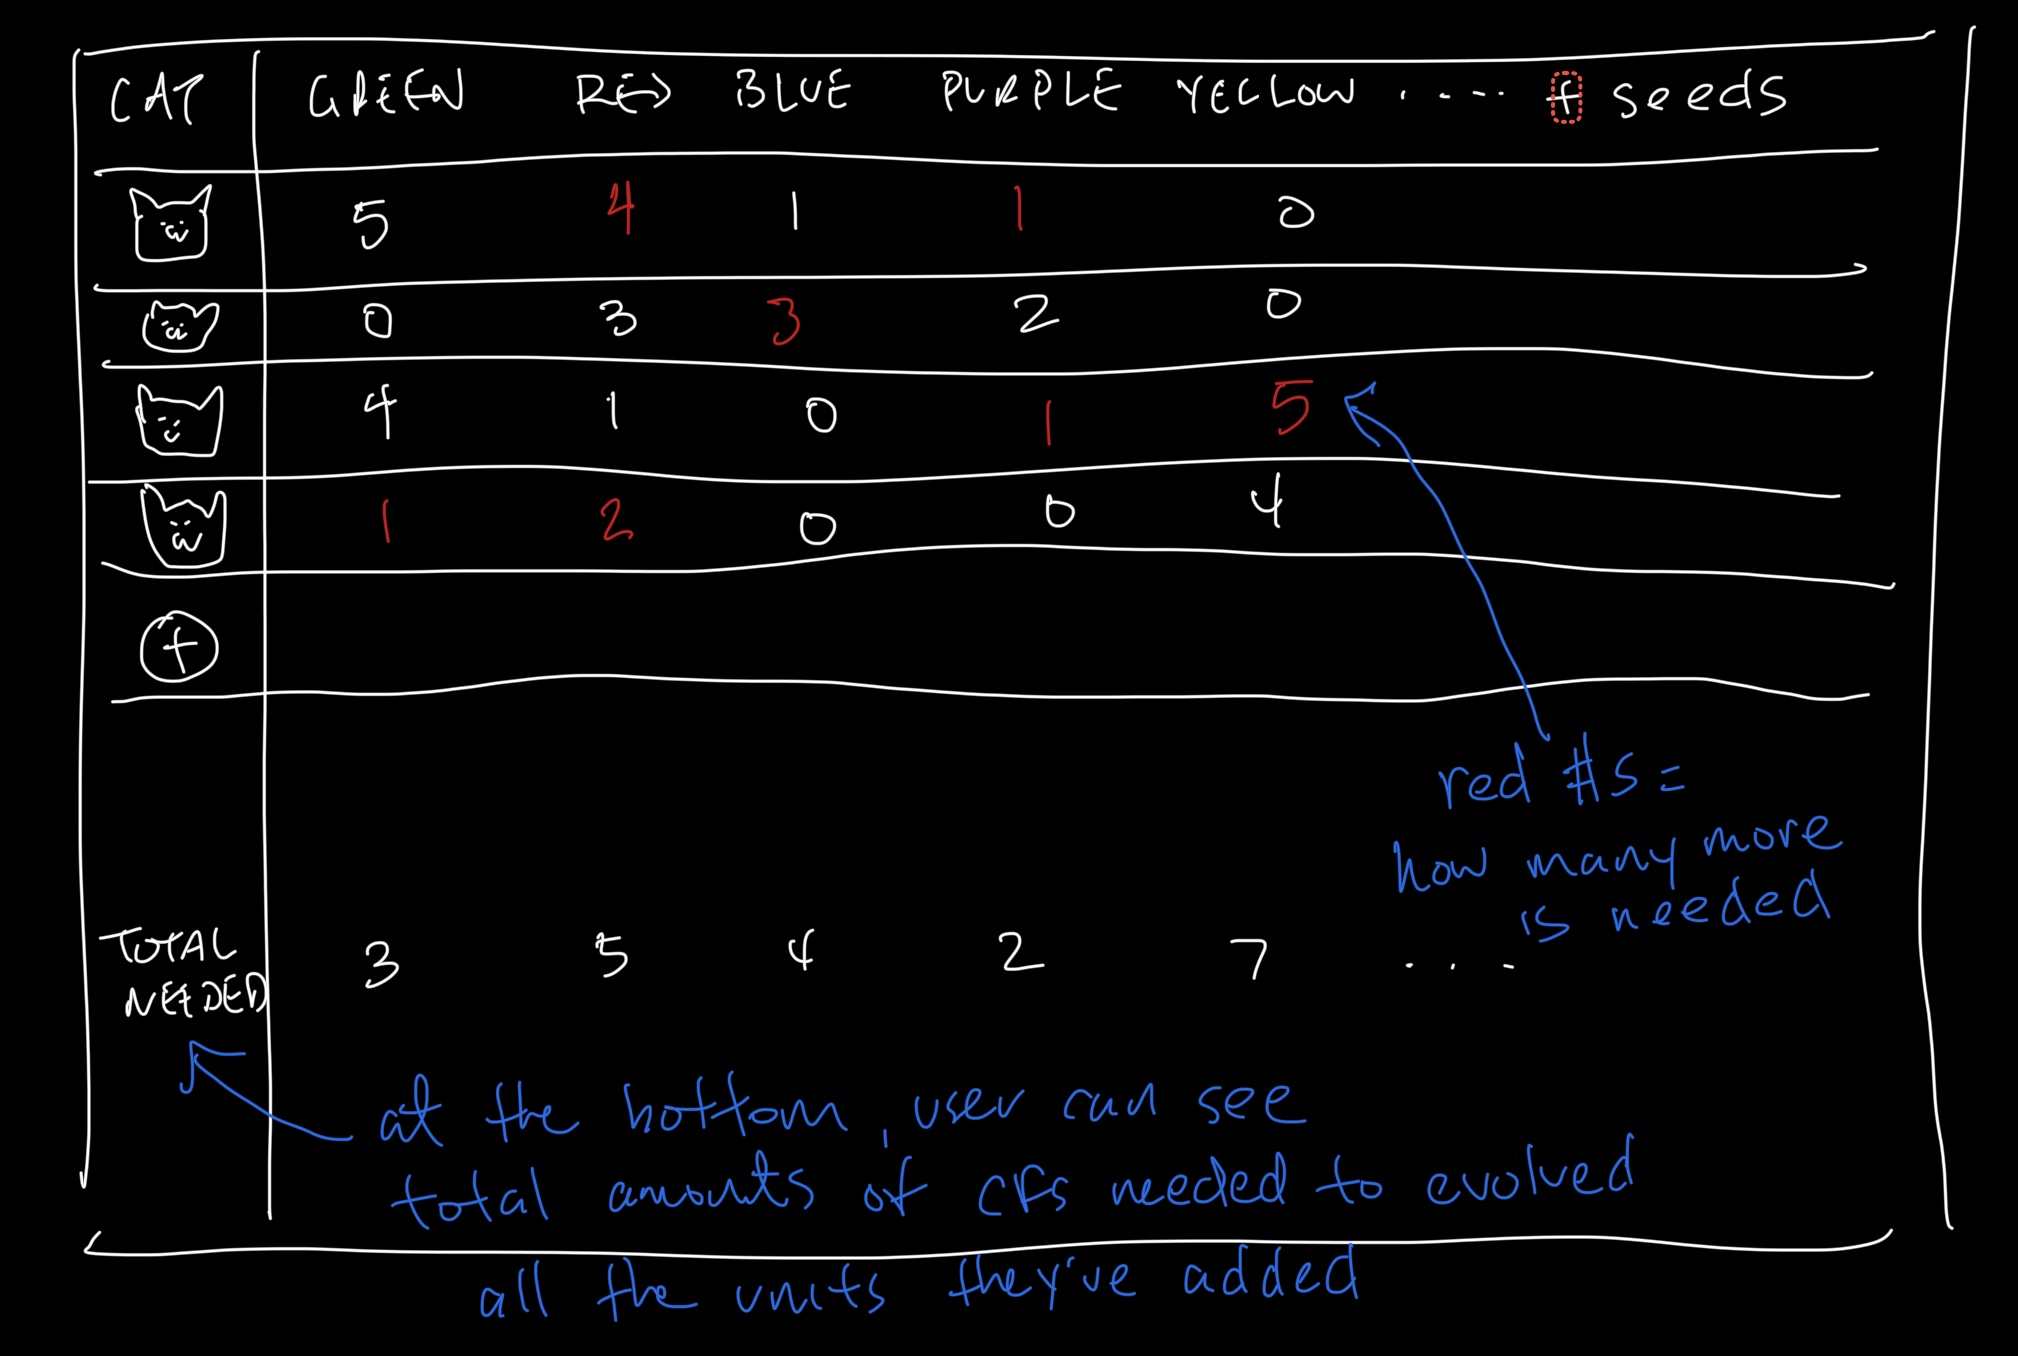 CAT GREEN RED BLUE PURPLE YELLOW .... + seeds
5 4 1 1 0
0 3 3 2 0
4 1 0 1 5
1 2 0 0 4
+
red #s =
how many more
is needed
TOTAL
NEEDED 3 5 4 2 7 ...
at the bottom, user can see
total amounts of CFs needed to evolved
all the units they've added